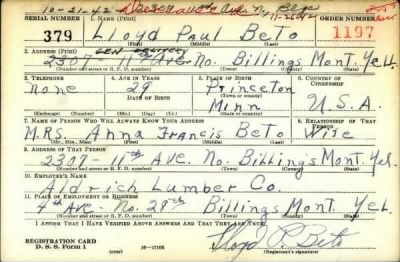 10-21-42
11-26-42
SERIAL NUMBER 1. NAME (Print) ORDER NUMBER
379 Lloyd Paul Beto 1197
(First) (Middle) (Last)
2. ADDRESS (Print) GEN DELIVERY
2307 11th Ave. No. Billings Mont. Yell.
(Number and street or R. F. D. number) (Town) (County) (State)
3. TELEPHONE 4. AGE IN YEARS 5. PLACE OF BIRTH 6. COUNTRY OF CITIZENSHIP
none 29 Princeton
DATE OF BIRTH (Town or county)
Minn U.S.A.
(Exchange) (Number) (Mo.) (Day) (Yr.) (State or country)
7. NAME OF PERSON WHO WILL ALWAYS KNOW YOUR ADDRESS 8. RELATIONSHIP OF THAT PERSON
MRS. Anna Francis Beto Wife
(Mr., Mrs., Miss) (First) (Middle) (Last)
9. ADDRESS OF THAT PERSON
2307-11th Ave. No. Billings Mont. Yel.
(Number and street or R. F. D. number) (Town) (County) (State)
10. EMPLOYER'S NAME
Aldrich Lumber Co.
11. PLACE OF EMPLOYMENT OR BUSINESS
4th Ave- No. 29th Billings Mont. Yel.
(Number and street or R. F. D. number) (Town) (County) (State)
I AFFIRM THAT I HAVE VERIFIED ABOVE ANSWERS AND THAT THEY ARE TRUE.
REGISTRATION CARD
D. S. S. Form 1 16-17105
Lloyd P. Beto
(Registrant's signature)